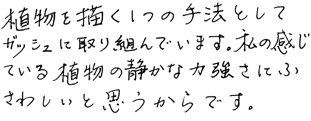 植物を描く1つの手法として
ガッシュに取り組んでいます。私の感じ
ている植物の静かな力強さにふ
さわしいと思うからです。